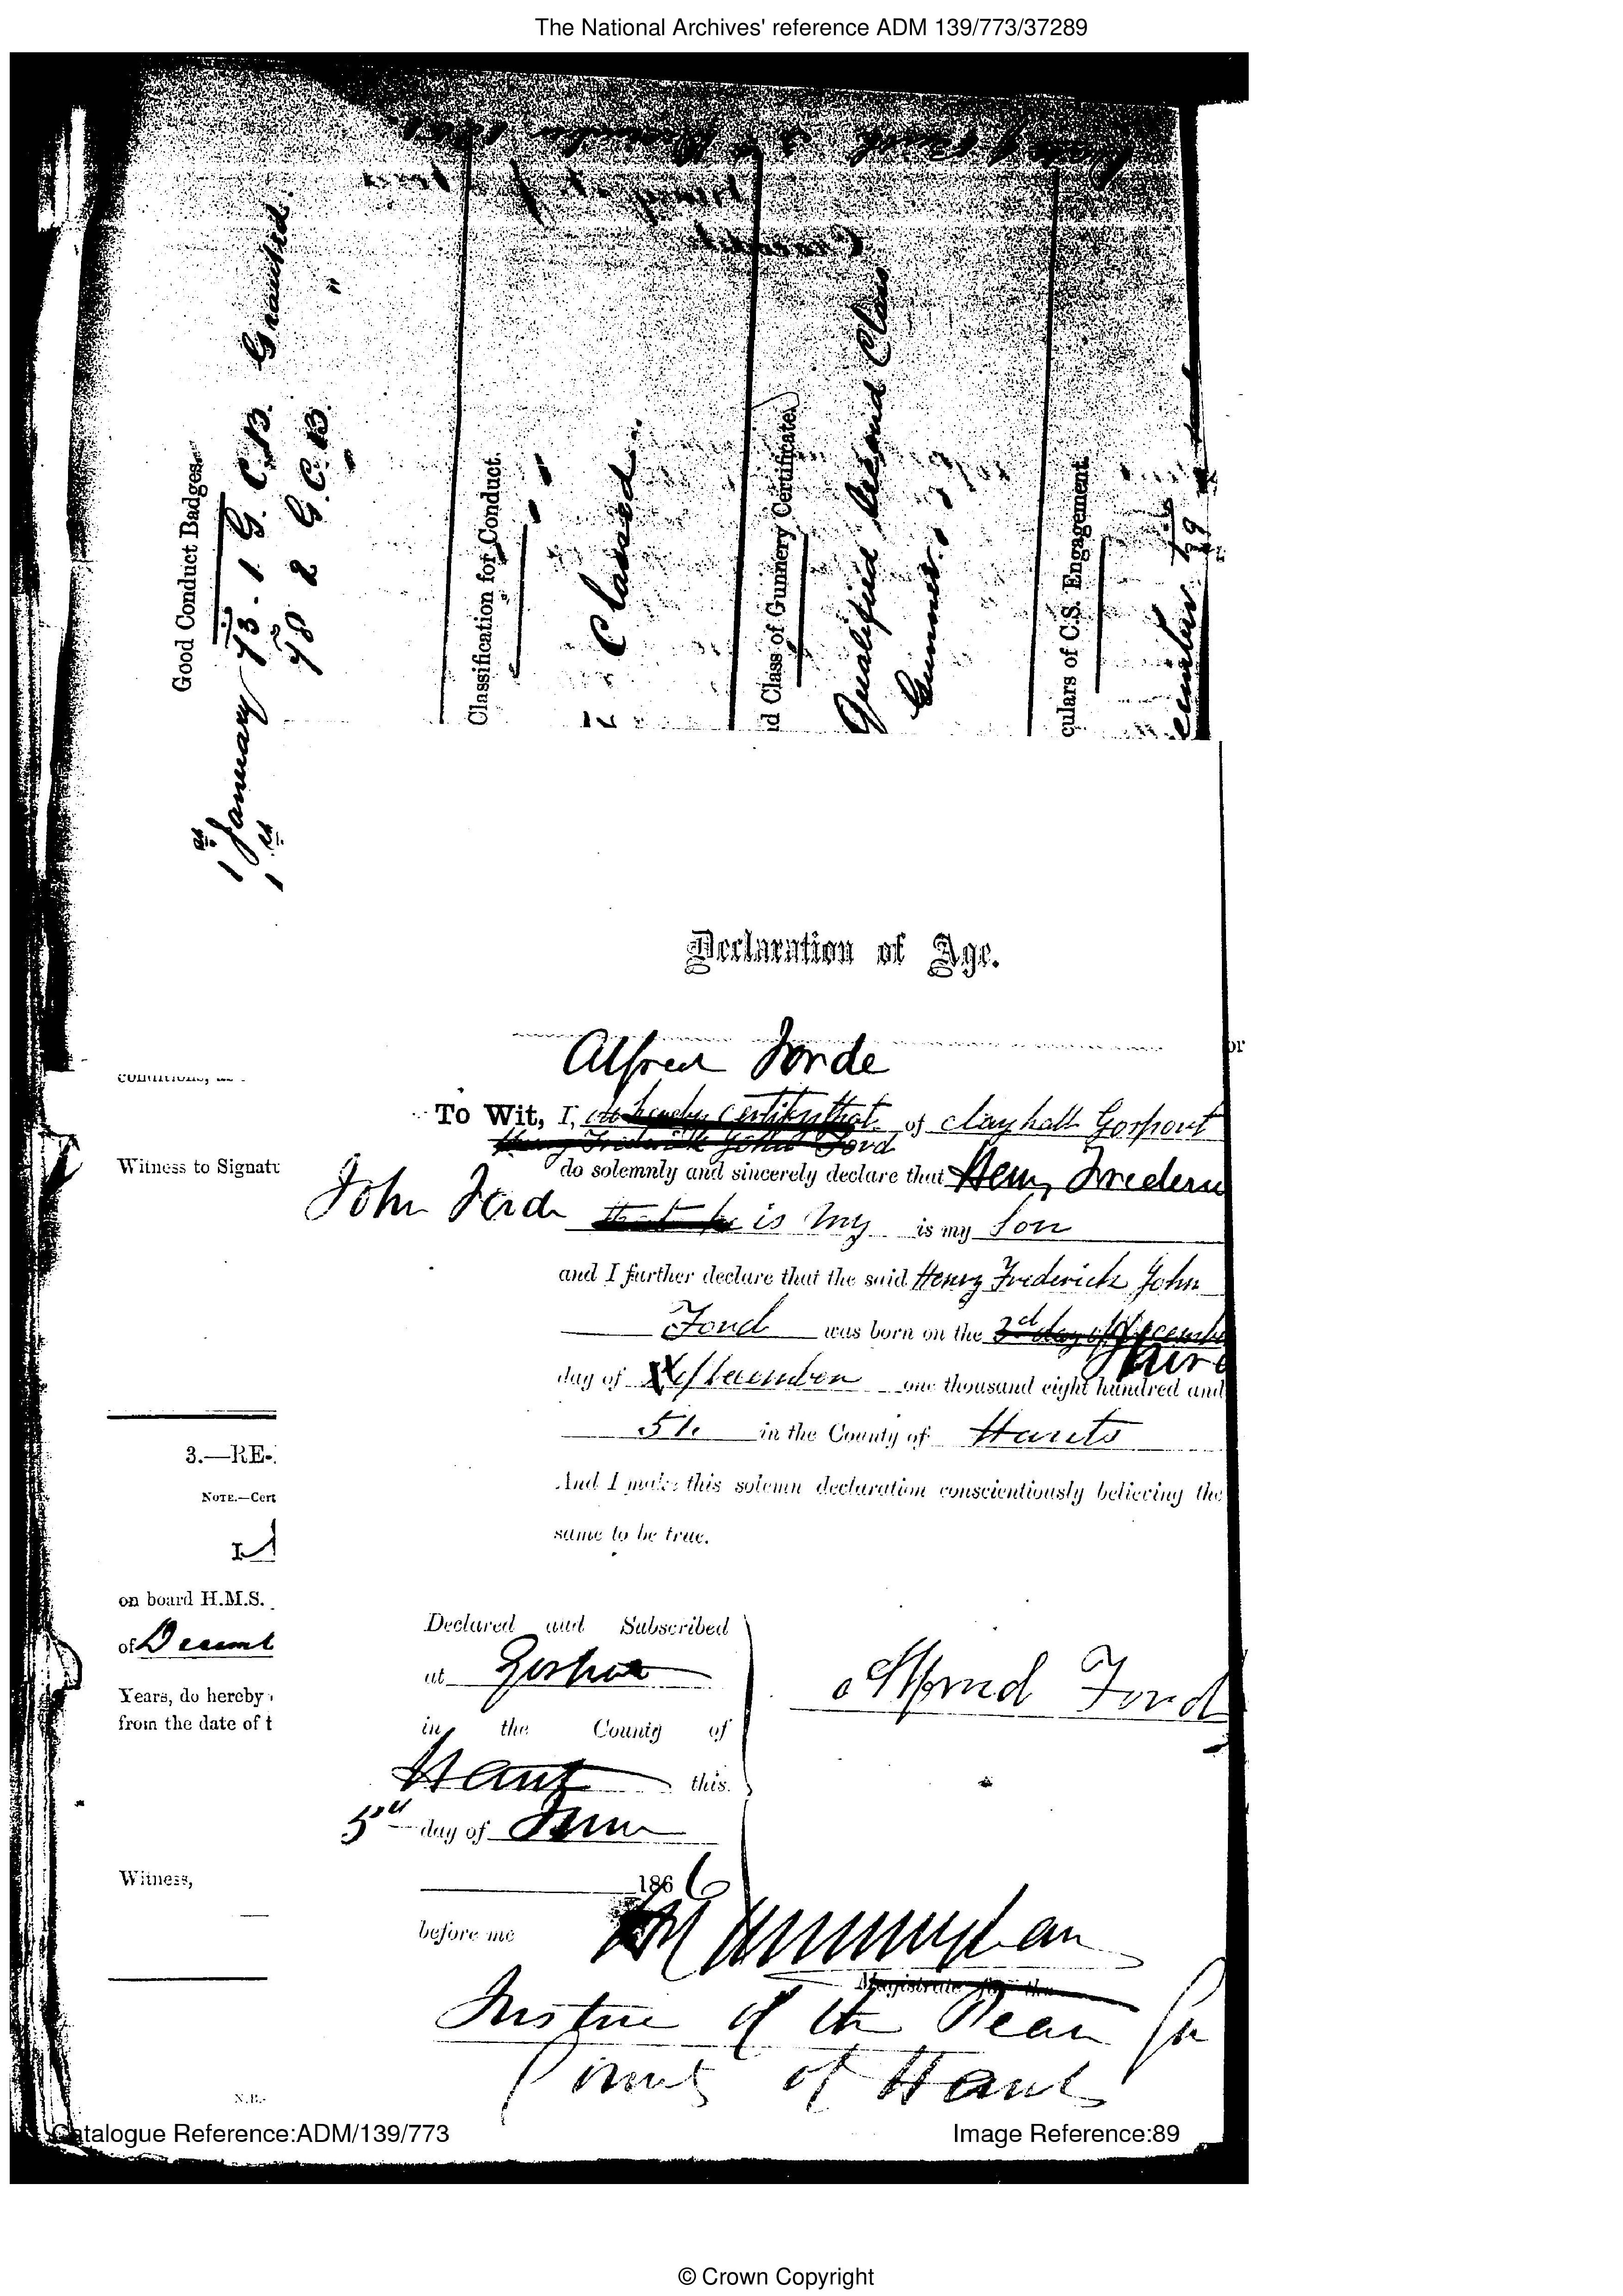 The National Archives' reference ADM 139/773/37289
Good Conduct Badges
1st January 73. 1 G. C. B. Granted
1st " 78 2 G. C. B. "
Classification for Conduct.
Classed
d Class of Gunnery Certificate
Qualified Second Class
Gunner
culars of C.S. Engagement
Declaration of Age.
Alfred Forde
or
conditions,
To Wit, I, do hereby certify that of Clayhall Gosport
Henry Frederick John Ford
Witness to Signatu
do solemnly and sincerely declare that Henry Frederic
John Ford that he is my is my Son
and I further declare that the said Henry Frederick John
Ford was born on the 3rd day of Decembe
Third
day of one thousand eight hundred and
51. in the County of Hants
3.—RE-
And I make this solemn declaration conscientiously believing the
NOTE.—Cert
same to be true.
I
on board H.M.S.
Declared and Subscribed
of Decemb
at Gosport
Alfred Ford
Years, do hereby
from the date of t
in the County of
Hants this
5th day of June
Witness,
1866
before me
Magistrate for the
Justice of the Peace for
County of Hants
N.B.-
Catalogue Reference:ADM/139/773
Image Reference:89
© Crown Copyright